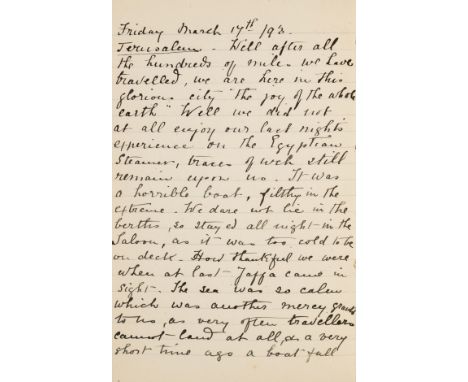 Friday March 17th /93.
Jerusalem - Well after all
the hundreds of miles we have
travelled, we are here in this
glorious city "the joy of the whole
earth" Well we did not
at all enjoy our last night's
experience on the Egyptian
Steamer, traces of wch still
remain upon us. It was
a horrible boat, filthy in the
extreme. We dare not lie in the
berths, so stayed all night in the
Saloon, as it was too cold to be
on deck. How thankful we were
when at last Jaffa came in
sight. The sea was so calm
which was another mercy
to us, as very often travellers
cannot land at all, & a very
short time ago a boat full